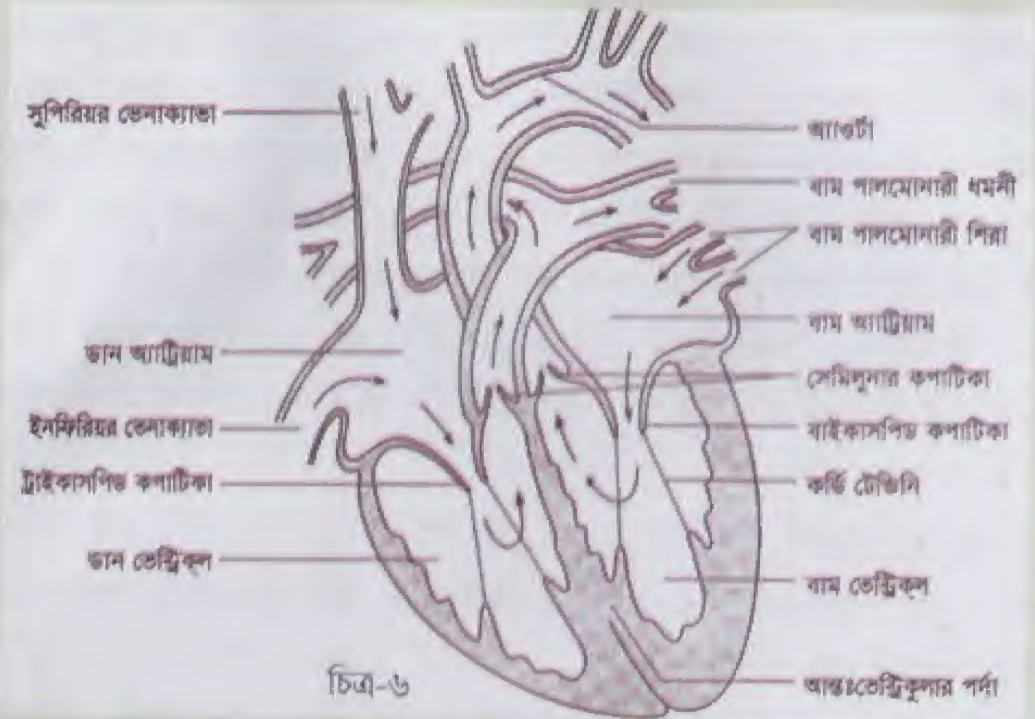 সুপিরিয়র ভেনাক্যাভা
ডান অ্যাট্রিয়াম
ইনফিরিয়র ভেনাক্যাভা
ট্রাইকাসপিড কপাটিকা
ডান ভেন্ট্রিকল
অ্যাওর্টা
বাম পালমোনারী ধমনী
বাম পালমোনারী শিরা
বাম অ্যাট্রিয়াম
সেমিলুনার কপাটিকা
বাইকাসপিড কপাটিকা
কর্ডি টেন্ডিনি
বাম ভেন্ট্রিক্‌ল
আন্তঃভেন্ট্রিকুলার পর্দা
চিত্র-৬